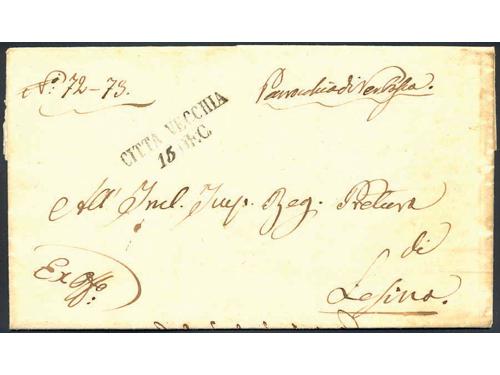 N.º 72–73.
Parrocchia di Verbagn.
CITTA VECCHIA
15 DEC.
All' Incl. Imp. Reg. Pretura
di
Lesina.
Ex Offo.